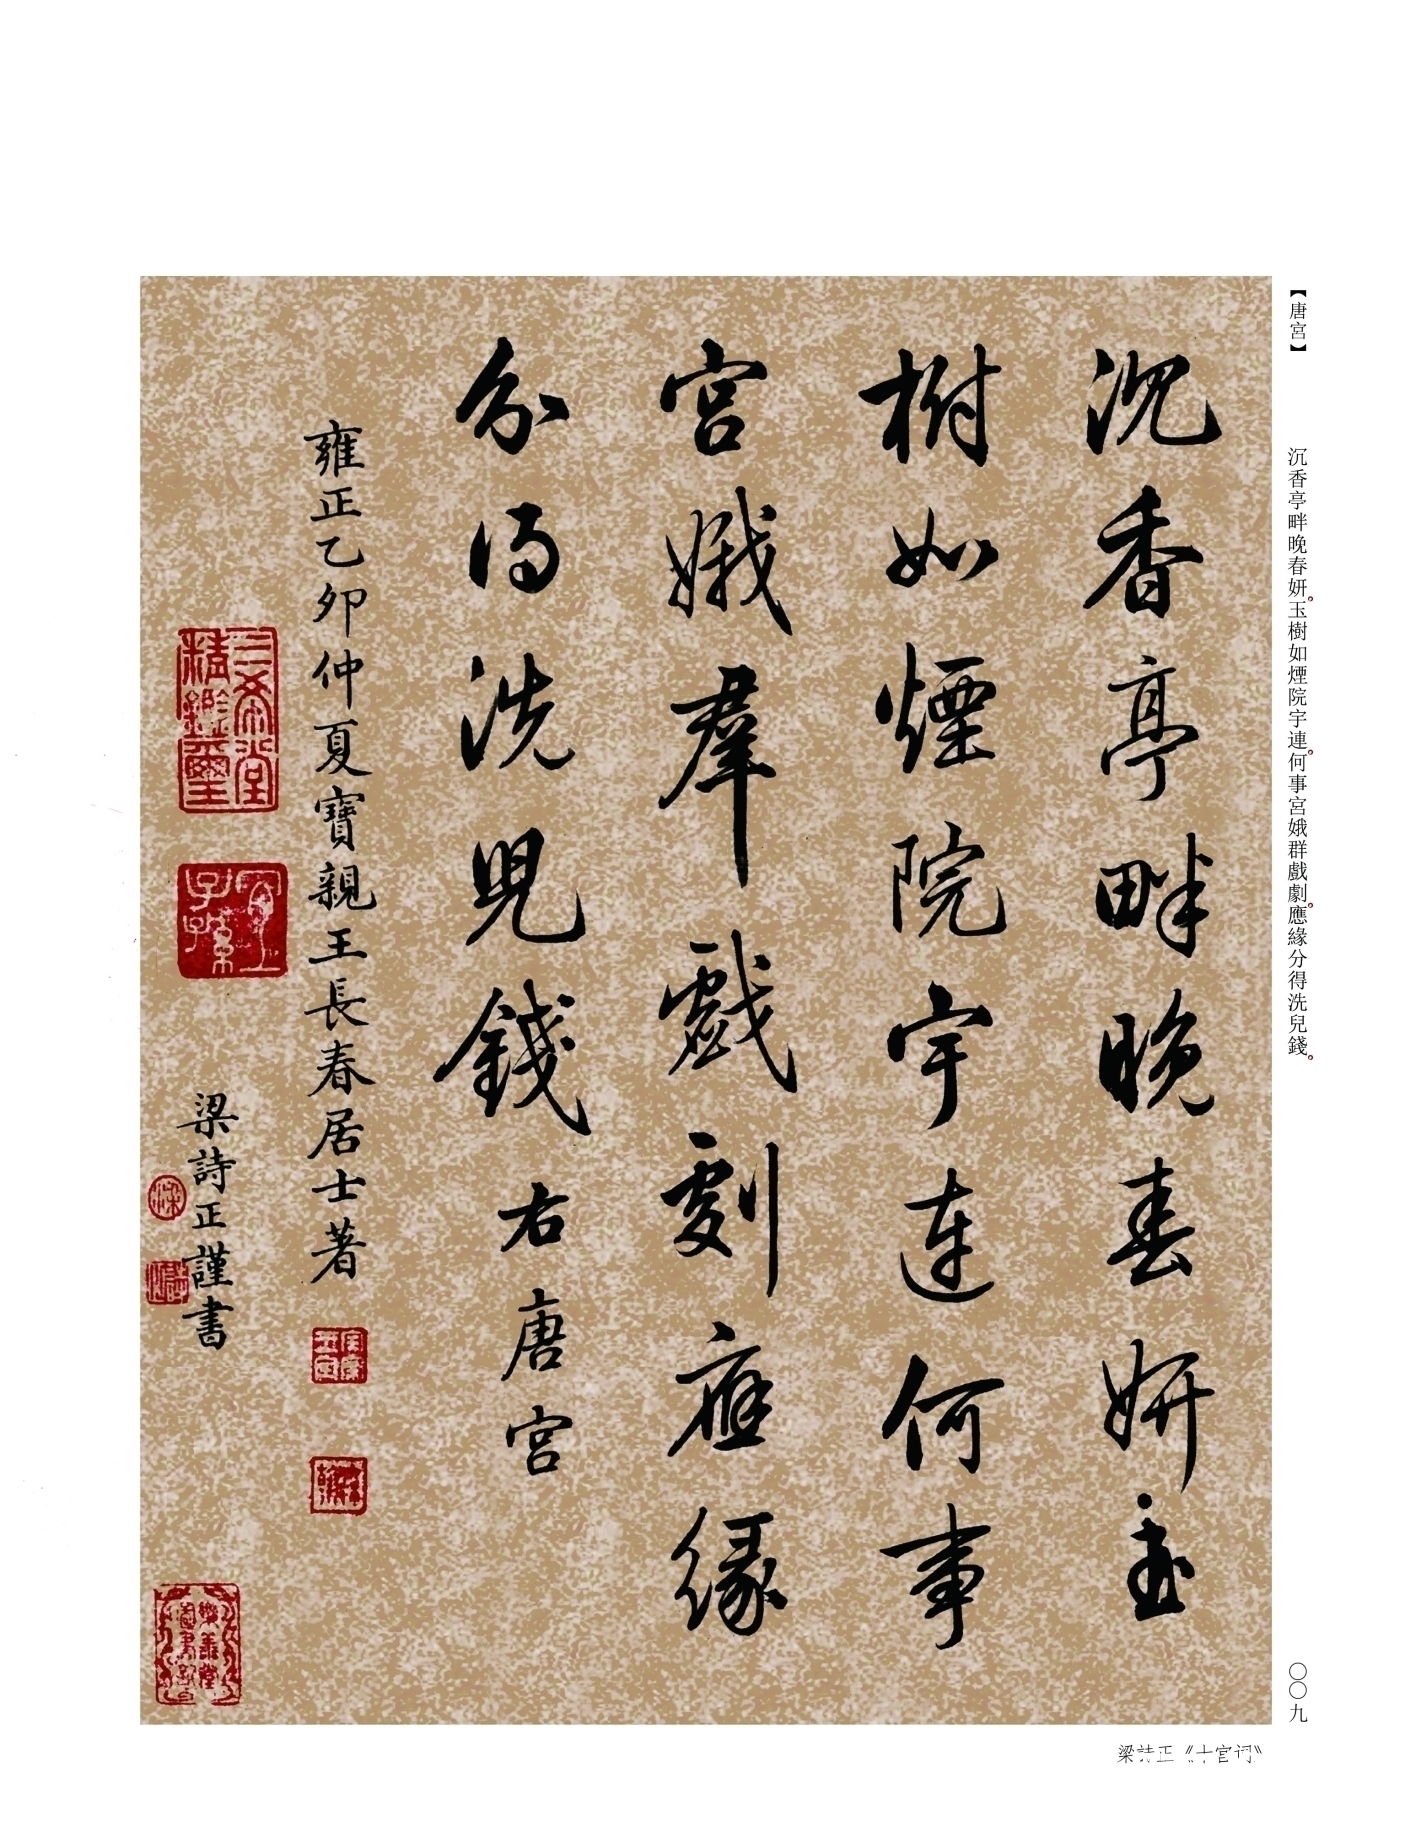 【唐宮】
沉香亭畔晚春妍。玉樹如煙院宇連。何事宮娥群戲劇。應緣分得洗兒錢。
〇〇九
沉香亭畔晚春妍玉
樹如煙院宇連何事
宮娥羣戲劇應緣
分得洗兒錢右唐宮
雍正乙卯仲夏寶親王長春居士著
梁詩正謹書
三希堂精鑑璽
宜子孫
梁詩正《十宮词》